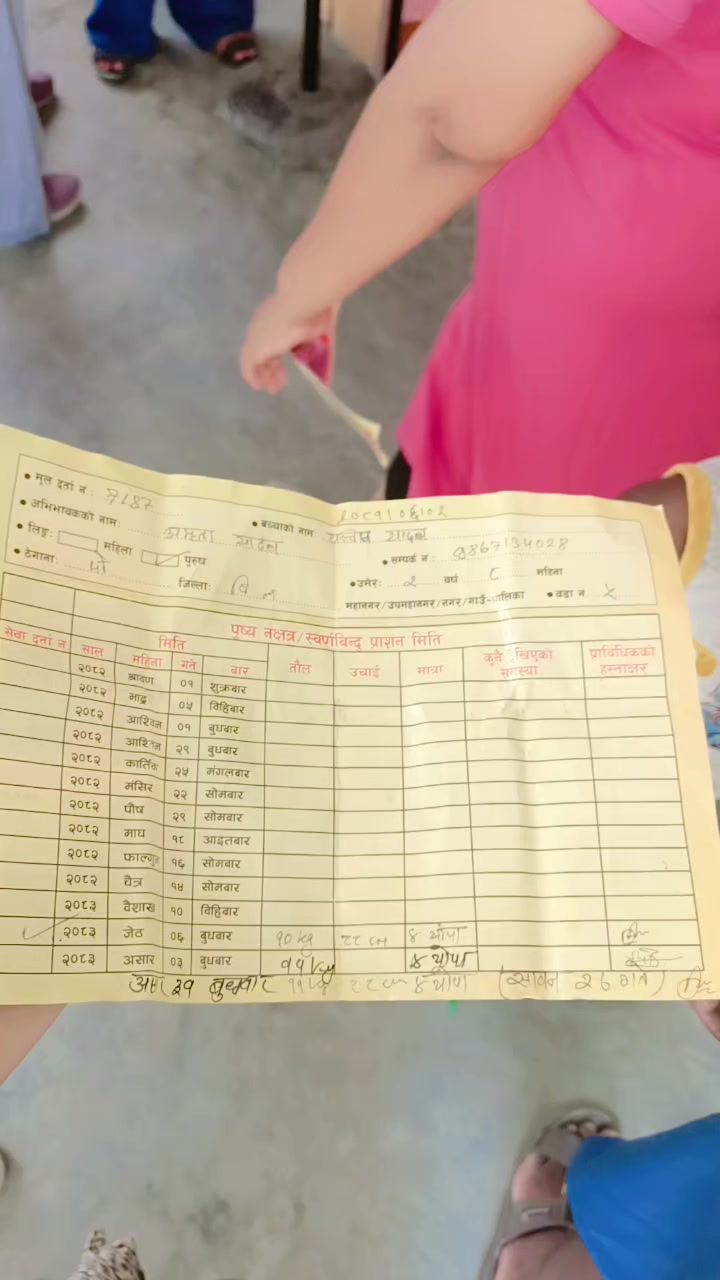 • मूल दर्ता नं.: 7187 २०८१।०६।०२
• अभिभावकको नाम: यादव • बच्चाको नाम यादव
• लिङ्ग: महिला पुरुष • सम्पर्क नं.: 9867134028
• ठेगाना: जिल्ला: • उमेर: २ वर्ष ८ महिना
महानगर/उपमहानगर/नगर/गाउँ-पालिका • वडा नं
पुष्य नक्षत्र/स्वर्णबिन्दु प्राशन मिति
सेवा दर्ता नं साल मिति तौल उचाई मात्रा कुनै देखिएको समस्या प्राविधिकको हस्ताक्षर
महिना गते बार
२०८२ श्रावण ०९ शुक्रबार
२०८२ भाद्र ०५ विहिबार
२०८२ आश्विन ०१ बुधबार
२०८२ आश्विन २९ बुधबार
२०८२ कार्तिक २५ मंगलबार
२०८२ मंसिर २२ सोमबार
२०८२ पौष २९ सोमबार
२०८२ माघ १८ आइतबार
२०८२ फाल्गुन १६ सोमबार
२०८२ चैत्र १५ सोमबार
२०८३ वैशाख १० विहिबार
२०८३ जेठ ०६ बुधबार १० kg ८८ cm ४ थोपा
२०८३ असार ०३ बुधबार ११ kg ४ थोपा
३१ बुधवार ११ kg ८८ cm ४ थोपा (सावन २८ गते)